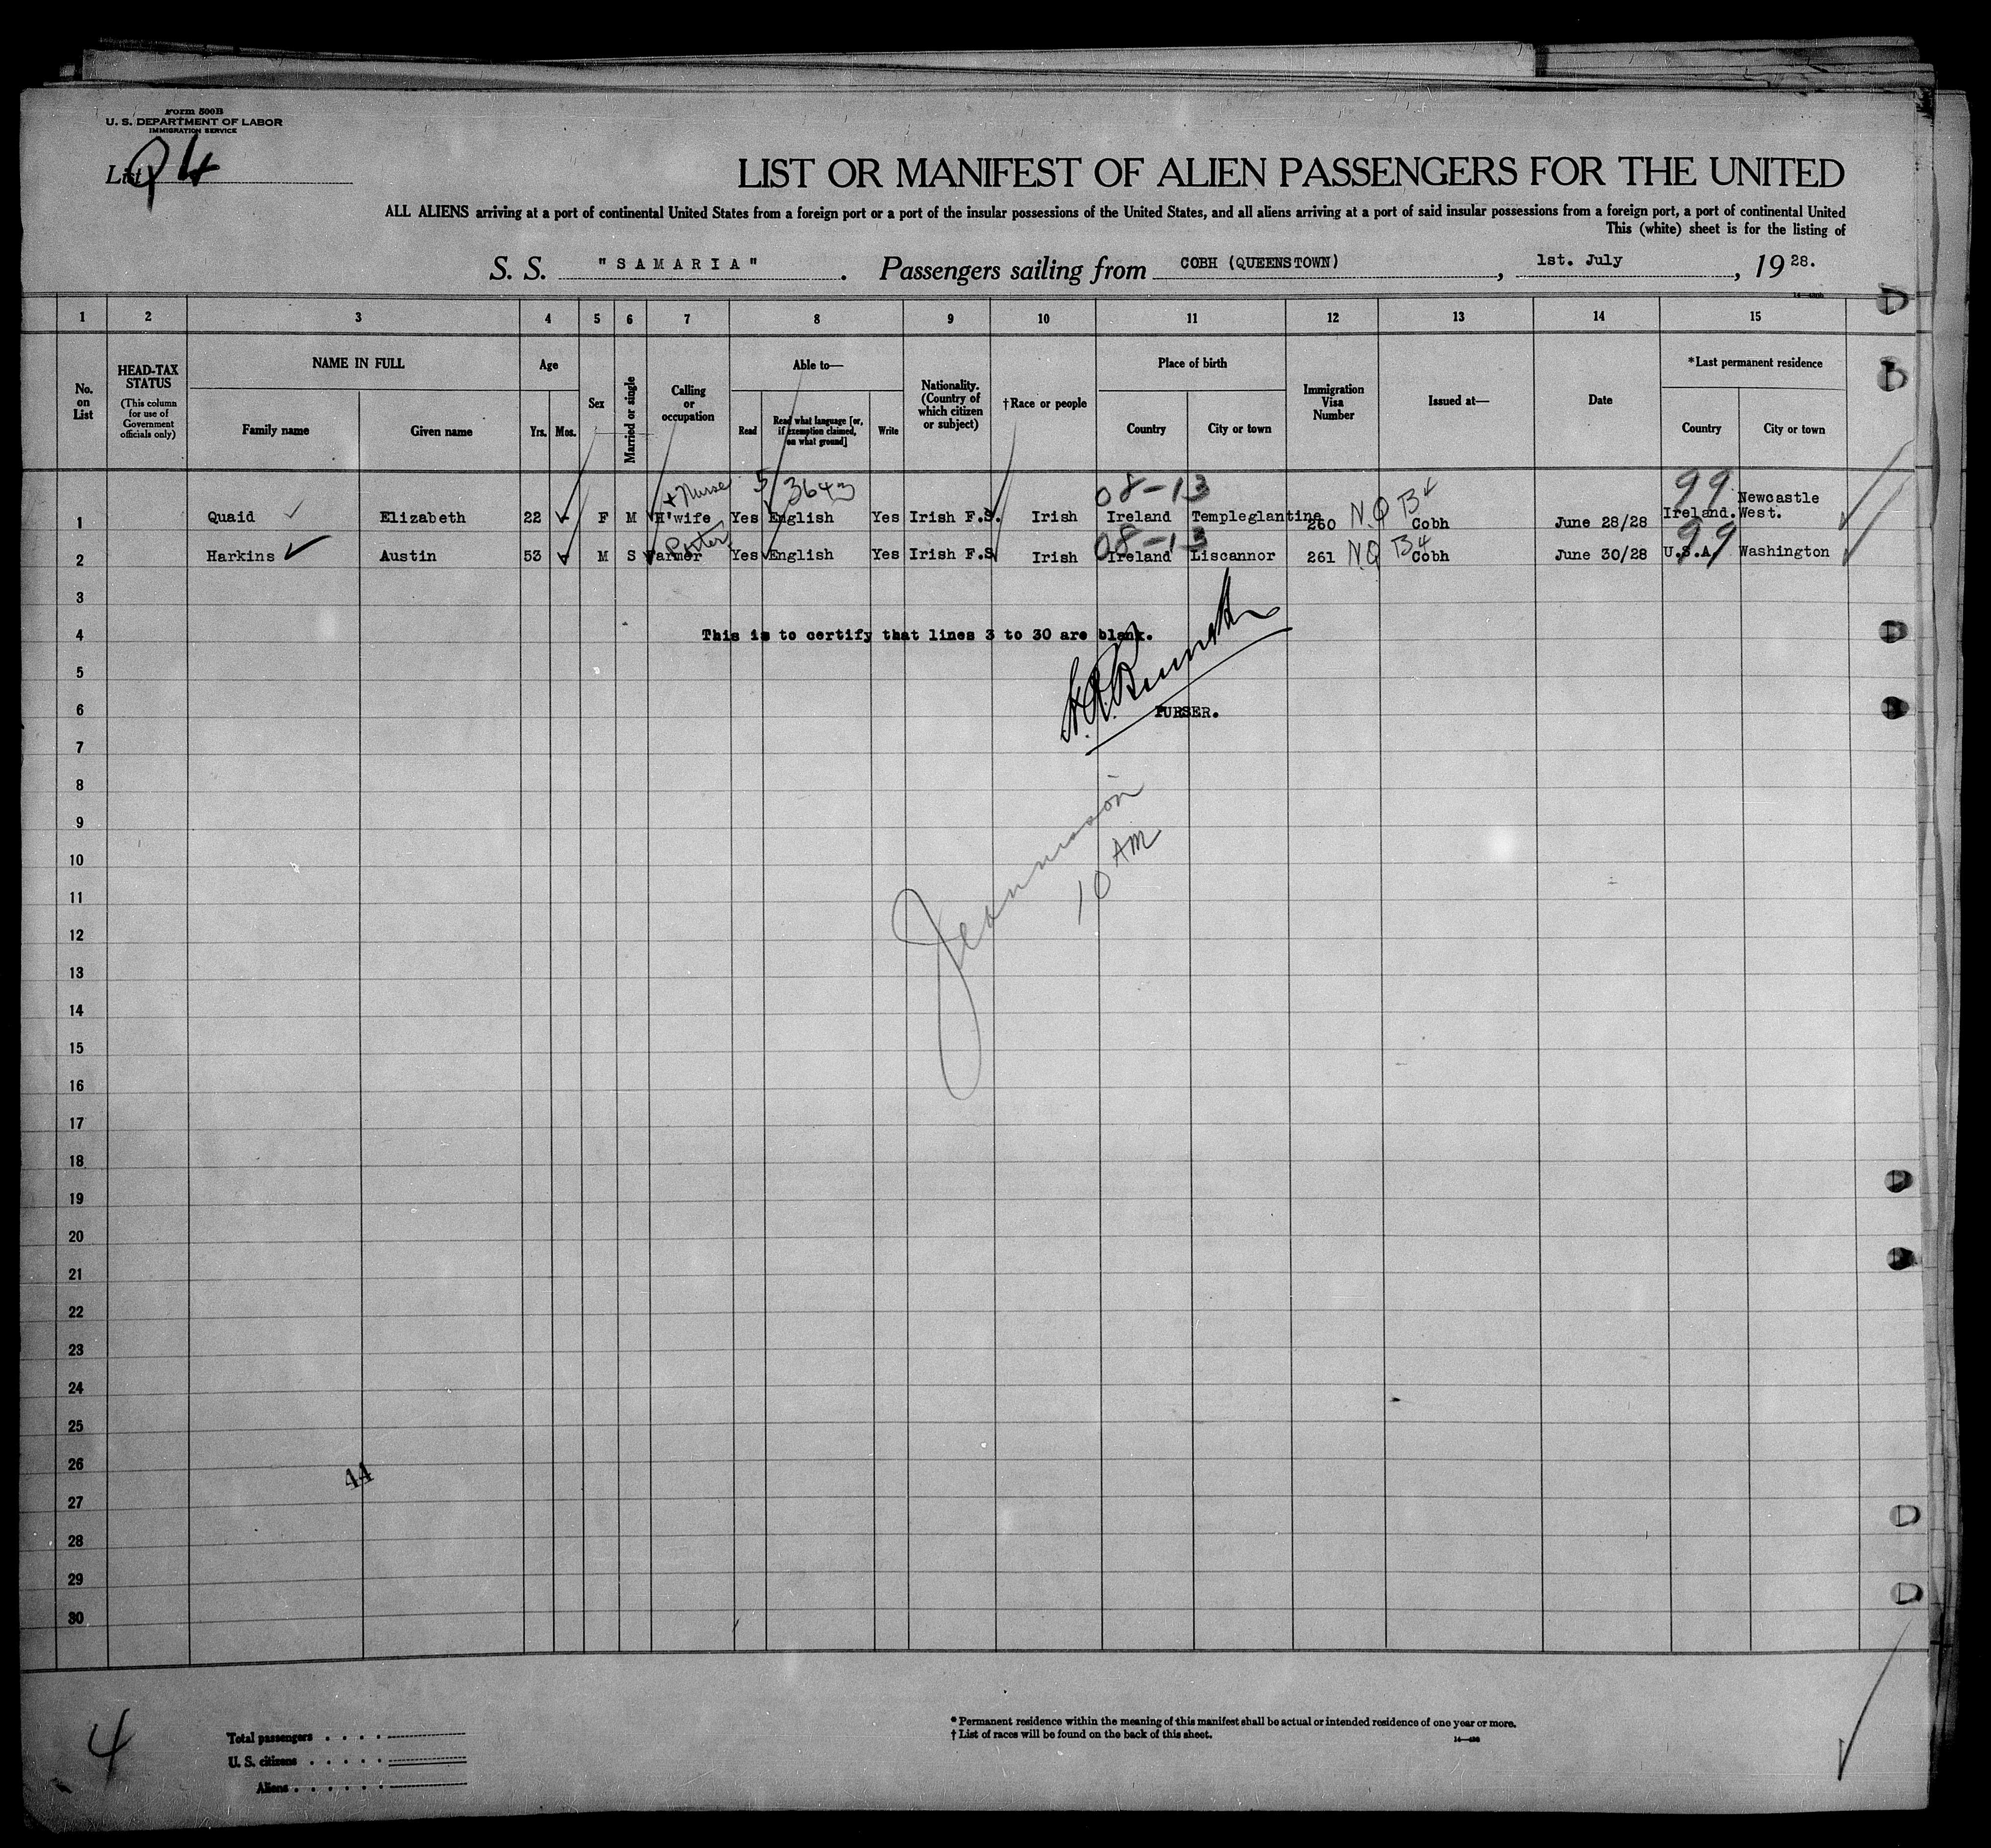 Form 500B
U. S. DEPARTMENT OF LABOR
IMMIGRATION SERVICE
List 94
LIST OR MANIFEST OF ALIEN PASSENGERS FOR THE UNITED
ALL ALIENS arriving at a port of continental United States from a foreign port or a port of the insular possessions of the United States, and all aliens arriving at a port of said insular possessions from a foreign port, a port of continental United
This (white) sheet is for the listing of
S. S. "SAMARIA". Passengers sailing from COBH (QUEENSTOWN), 1st. July, 1928.
1 2 3 4 5 6 7 8 9 10 11 12 13 14 15
No. on List
HEAD-TAX STATUS (This column for use of Government officials only)
NAME IN FULL Family name Given name
Age Yrs. Mos.
Sex
Married or single
Calling or occupation
Able to— Read Read what language [or, if exemption claimed, on what ground] Write
Nationality. (Country of which citizen or subject)
†Race or people
Place of birth Country City or town
Immigration Visa Number
Issued at—
Date
*Last permanent residence Country City or town
+ Nurse 5 08-13 99
1 Quaid Elizabeth 22 F M H'wife Yes English Yes Irish F.S. Irish Ireland Templeglantine 260 N.Q B4 Cobh June 28/28 Ireland. Newcastle West.
Porter 08-13 99
2 Harkins Austin 53 M S Farmer Yes English Yes Irish F.S Irish Ireland Liscannor 261 N.Q B4 Cobh June 30/28 U.S.A. Washington
3
4 This is to certify that lines 3 to 30 are blank.
5
6 PURSER.
7
8
9
10 10 AM
11
12
13
14
15
16
17
18
19
20
21
22
23
24
25
26 44
27
28
29
30
4
Total passengers
U. S. citizens
Aliens
* Permanent residence within the meaning of this manifest shall be actual or intended residence of one year or more.
† List of races will be found on the back of this sheet.